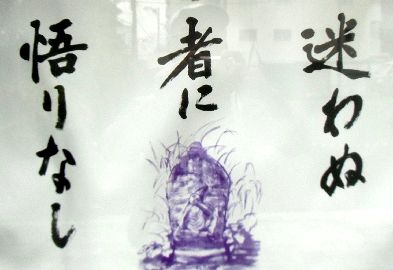 迷わぬ
者に
悟りなし